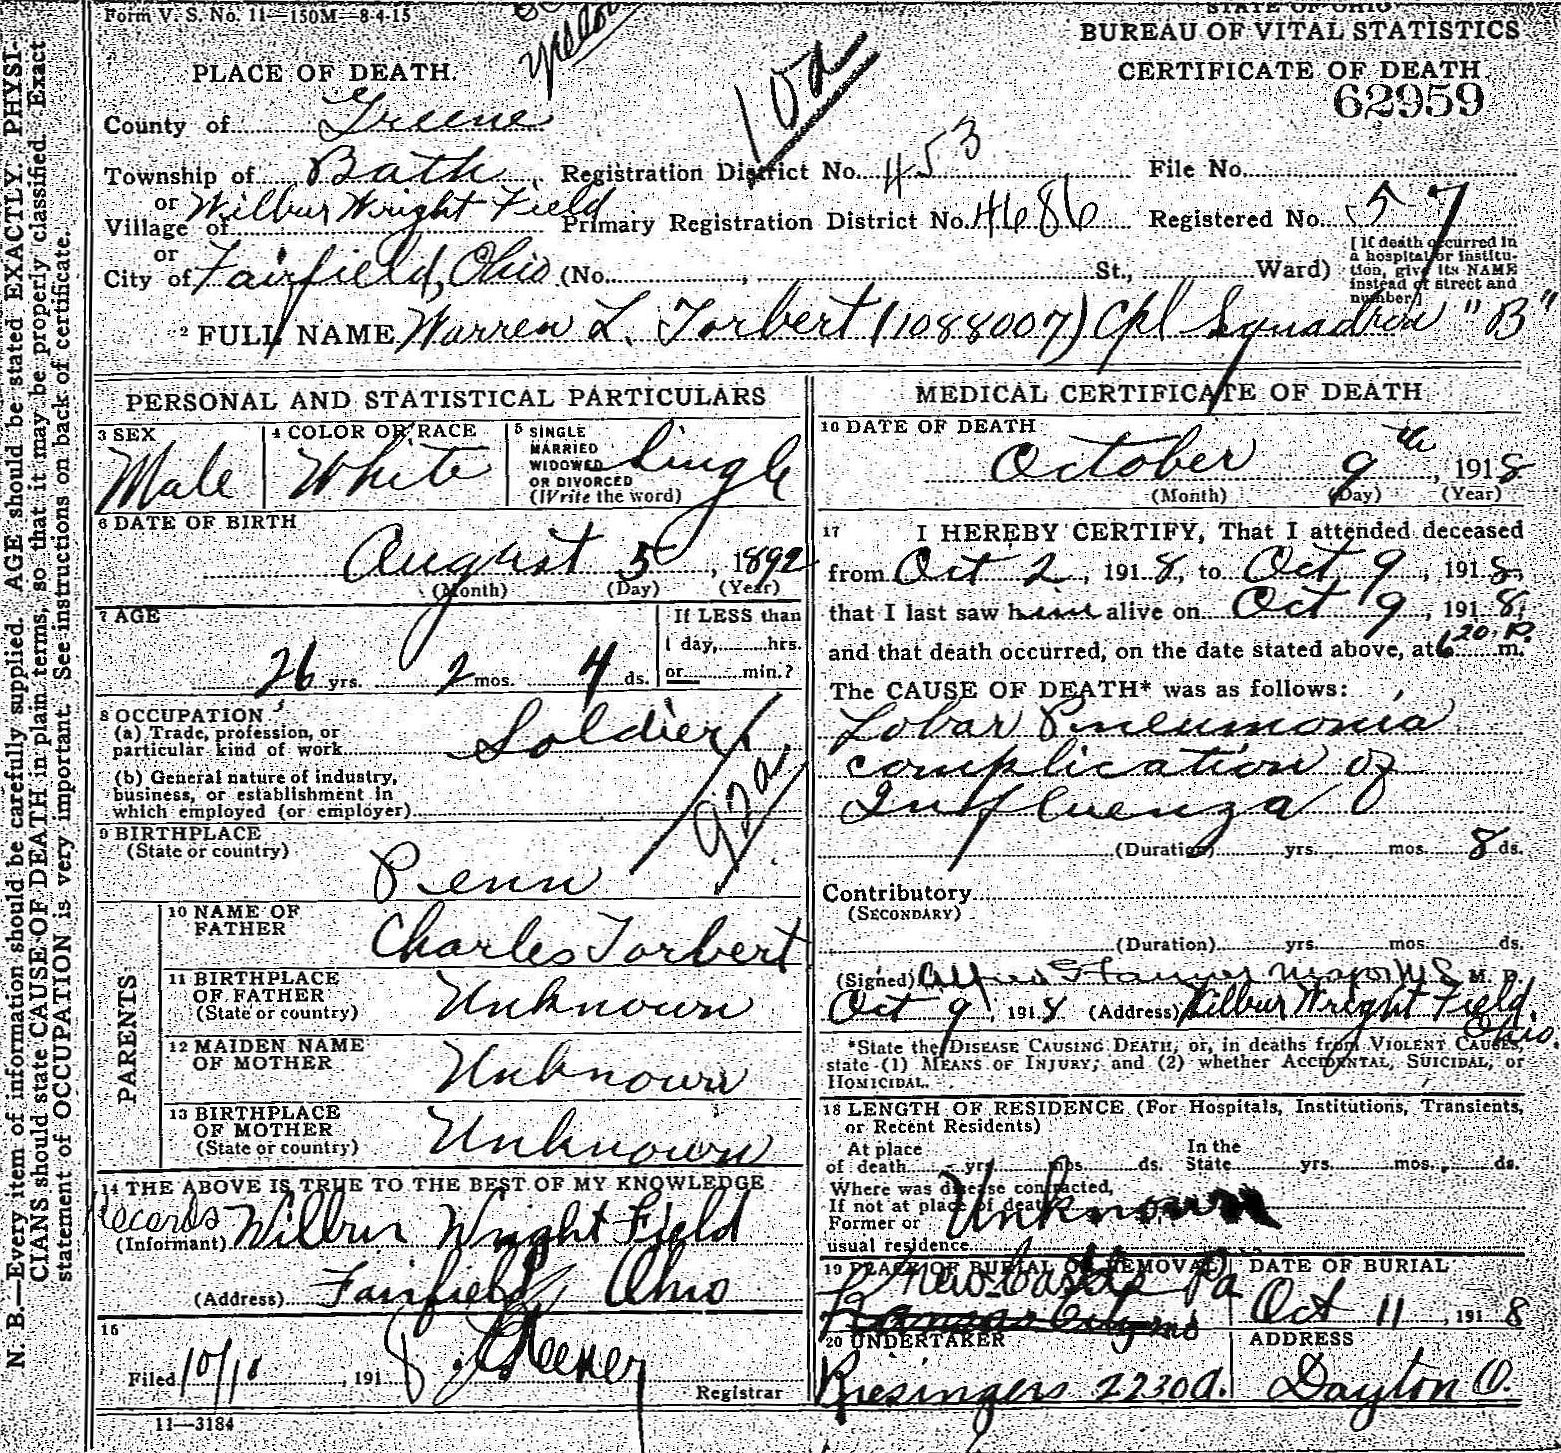 Form V. S. No. 11—150M—8-4-15
STATE OF OHIO
BUREAU OF VITAL STATISTICS
PLACE OF DEATH.
CERTIFICATE OF DEATH
62959
County of Greene
Township of Bath Registration District No. 453 File No.
or
Village of Wilbur Wright Field Primary Registration District No. 4686 Registered No. 57
or
City of Fairfield, Ohio (No. , St., Ward)
[If death occurred in
a hospital or institu-
tion, give its NAME
instead of street and
number.]
2 FULL NAME Warren L. Torbert (1088007) Cpl Squadron "B"
PERSONAL AND STATISTICAL PARTICULARS
3 SEX
Male
4 COLOR OR RACE
White
5 SINGLE
MARRIED
WIDOWED
OR DIVORCED
(Write the word)
Single
6 DATE OF BIRTH
August 5, 1892
(Month) (Day) (Year)
7 AGE
26 yrs. 2 mos. 4 ds.
If LESS than
1 day, hrs.
or min.?
8 OCCUPATION
(a) Trade, profession, or
particular kind of work Soldier
(b) General nature of industry,
business, or establishment in
which employed (or employer)
92a
9 BIRTHPLACE
(State or country)
Penn
PARENTS
10 NAME OF
FATHER
Charles Torbert
11 BIRTHPLACE
OF FATHER
(State or country)
Unknown
12 MAIDEN NAME
OF MOTHER
Unknown
13 BIRTHPLACE
OF MOTHER
(State or country)
Unknown
14 THE ABOVE IS TRUE TO THE BEST OF MY KNOWLEDGE
Records
(Informant) Wilbur Wright Field
(Address) Fairfield, Ohio
15
Filed 10/10, 1918
Registrar
11—3184
MEDICAL CERTIFICATE OF DEATH
16 DATE OF DEATH
October 9th, 1918
(Month) (Day) (Year)
17 I HEREBY CERTIFY, That I attended deceased
from Oct 2, 1918, to Oct 9, 1918,
that I last saw him alive on Oct 9, 1918,
and that death occurred, on the date stated above, at 6 20 P. m.
The CAUSE OF DEATH* was as follows:
Lobar Pneumonia
complication of
Influenza
(Duration) yrs. mos. 8 ds.
Contributory
(SECONDARY)
(Duration) yrs. mos. ds.
(Signed) Alfred Major M. D.
Oct 9, 1918 (Address) Wilbur Wright Field
Ohio.
*State the DISEASE CAUSING DEATH, or, in deaths from VIOLENT CAUSES,
state (1) MEANS OF INJURY; and (2) whether ACCIDENTAL, SUICIDAL, or
HOMICIDAL.
18 LENGTH OF RESIDENCE (For Hospitals, Institutions, Transients,
or Recent Residents)
At place
of death yrs. mos. ds.
In the
State yrs. mos. ds.
Where was disease contracted,
If not at place of death?
Unknown
Former or
usual residence
19 PLACE OF BURIAL OR REMOVAL
New Castle Pa
Kansas City Mo
DATE OF BURIAL
Oct 11, 1918
20 UNDERTAKER
ADDRESS
Dayton O.
N. B.—Every item of information should be carefully supplied. AGE should be stated EXACTLY. PHYSI-
CIANS should state CAUSE OF DEATH in plain terms, so that it may be properly classified. Exact
statement of OCCUPATION is very important. See instructions on back of certificate.